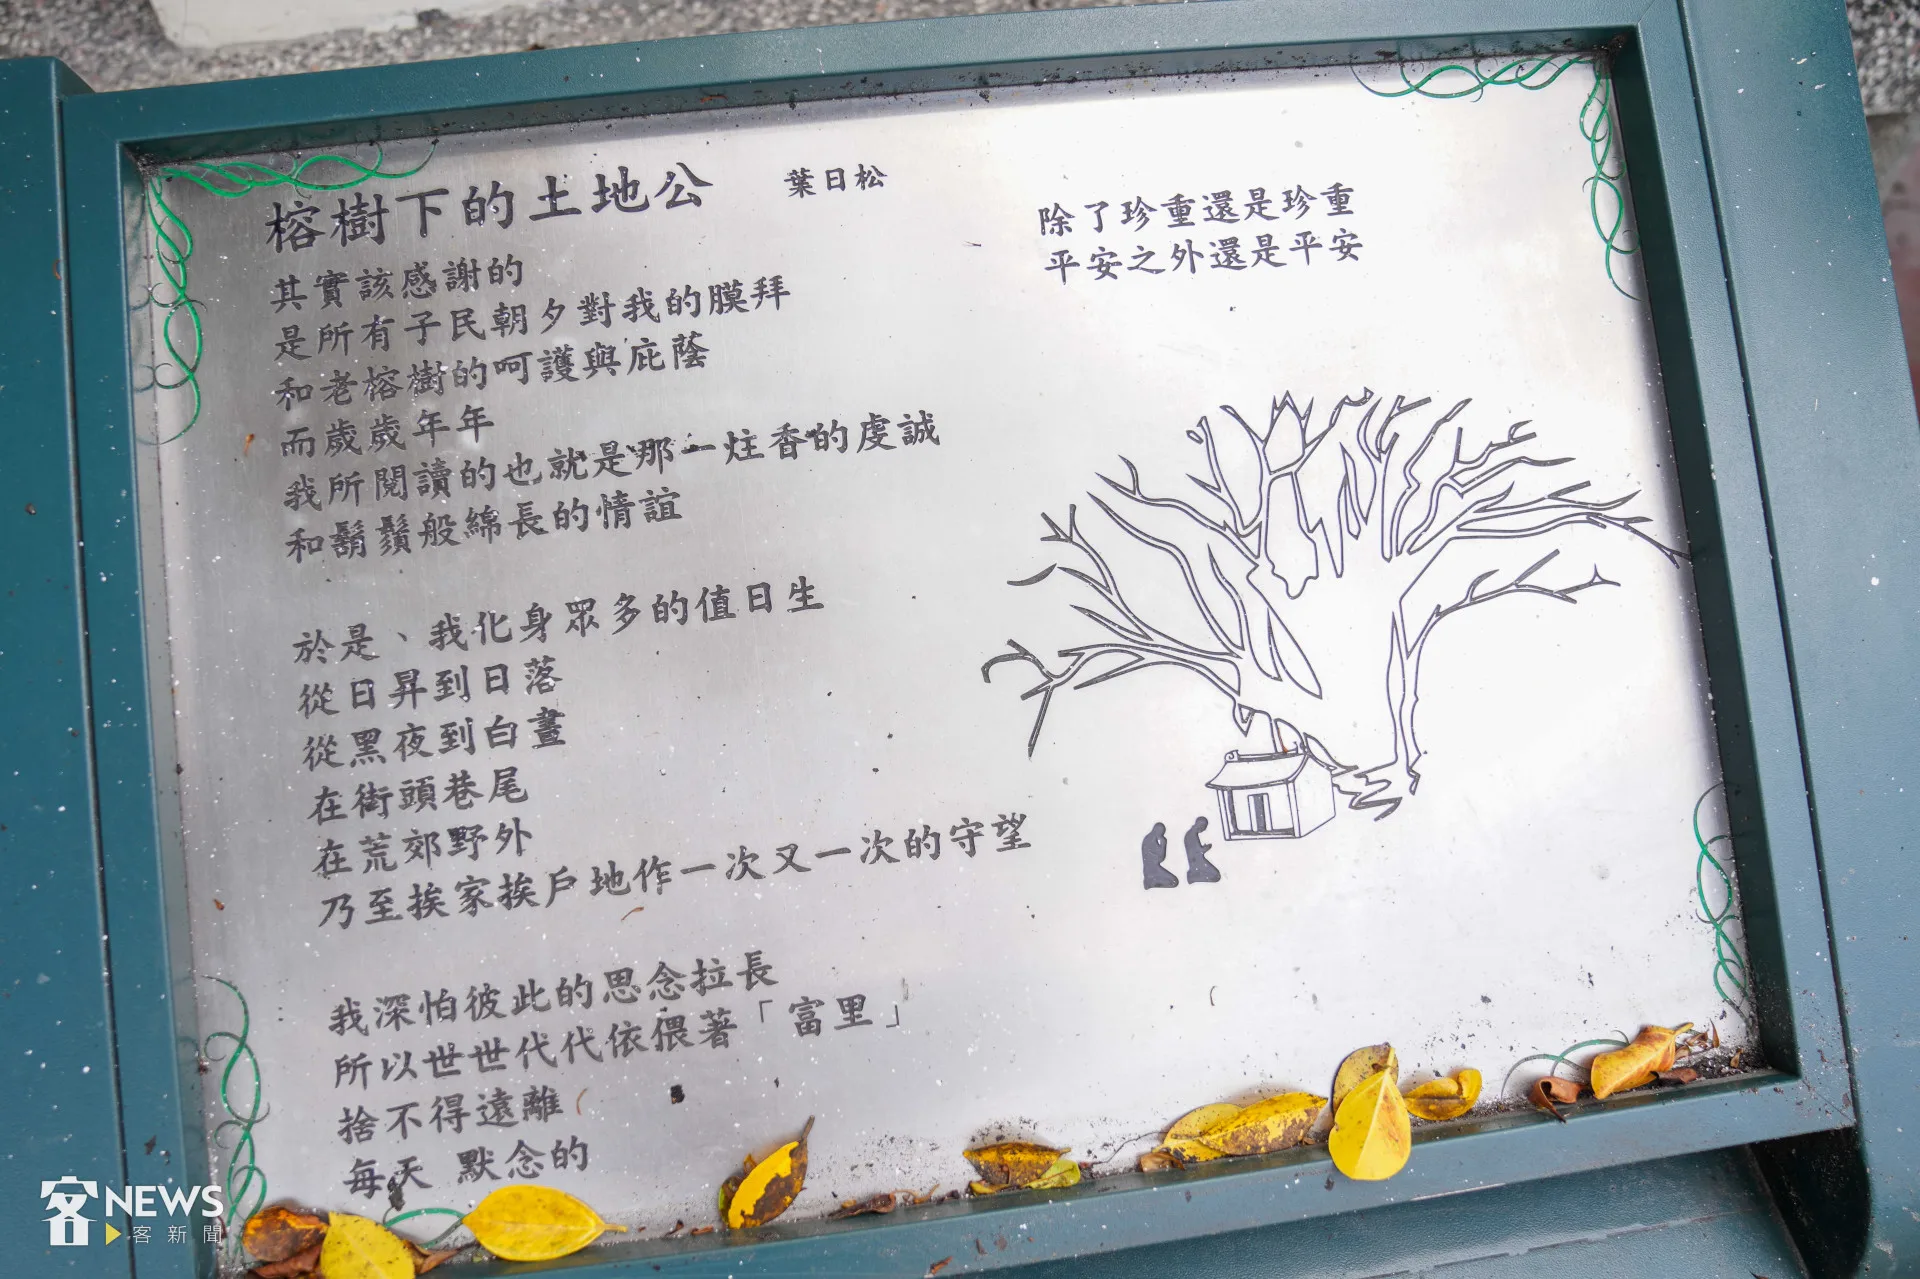 榕樹下的土地公
葉日松
其實該感謝的
是所有子民朝夕對我的膜拜
和老榕樹的呵護與庇蔭
而歲歲年年
我所閱讀的也就是那一炷香的虔誠
和鬍鬚般綿長的情誼
於是、我化身眾多的值日生
從日昇到日落
從黑夜到白晝
在街頭巷尾
在荒郊野外
乃至挨家挨戶地作一次又一次的守望
我深怕彼此的思念拉長
所以世世代代依偎著「富里」
捨不得遠離
每天 默念的
除了珍重還是珍重
平安之外還是平安
客NEWS
客新聞